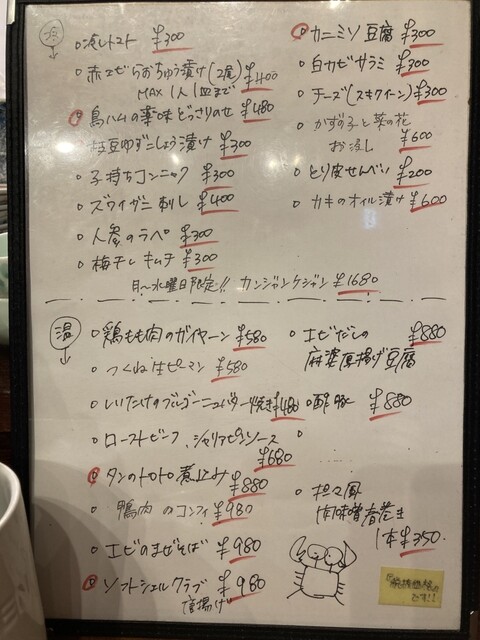 冷
冷しトマト ¥300
赤エビらおちゅう漬け(2尾) ¥400
MAX 1人1皿まで
鳥ハムの薬味どっさりのせ ¥480
枝豆ゆずこしょう漬け ¥300
子持ちコンニャク ¥300
ズワイガニ刺し ¥400
人参のラペ ¥300
梅干しキムチ ¥300
カニミソ豆腐 ¥300
白カビサラミ ¥300
チーズ(スキクイーン) ¥300
かずの子と菜の花
お浸し ¥600
とり皮せんべい ¥200
カキのオイル漬け ¥600
月〜水曜日限定!! カンジャンケジャン ¥1680
温
鶏もも肉のガイヤーン ¥580
つくね生ピーマン ¥580
しいたけのブルゴーニュバター焼き ¥480
ローストビーフ シャリアピンソース
¥680
タンのトロトロ煮込み ¥880
鴨肉のコンフィ ¥980
エビのまぜそば ¥980
ソフトシェルクラブ ¥980
唐揚げ
エビだしの ¥880
麻婆厚揚げ豆腐
酢豚 ¥880
担々風
肉味噌春巻き
1本¥350
です!!